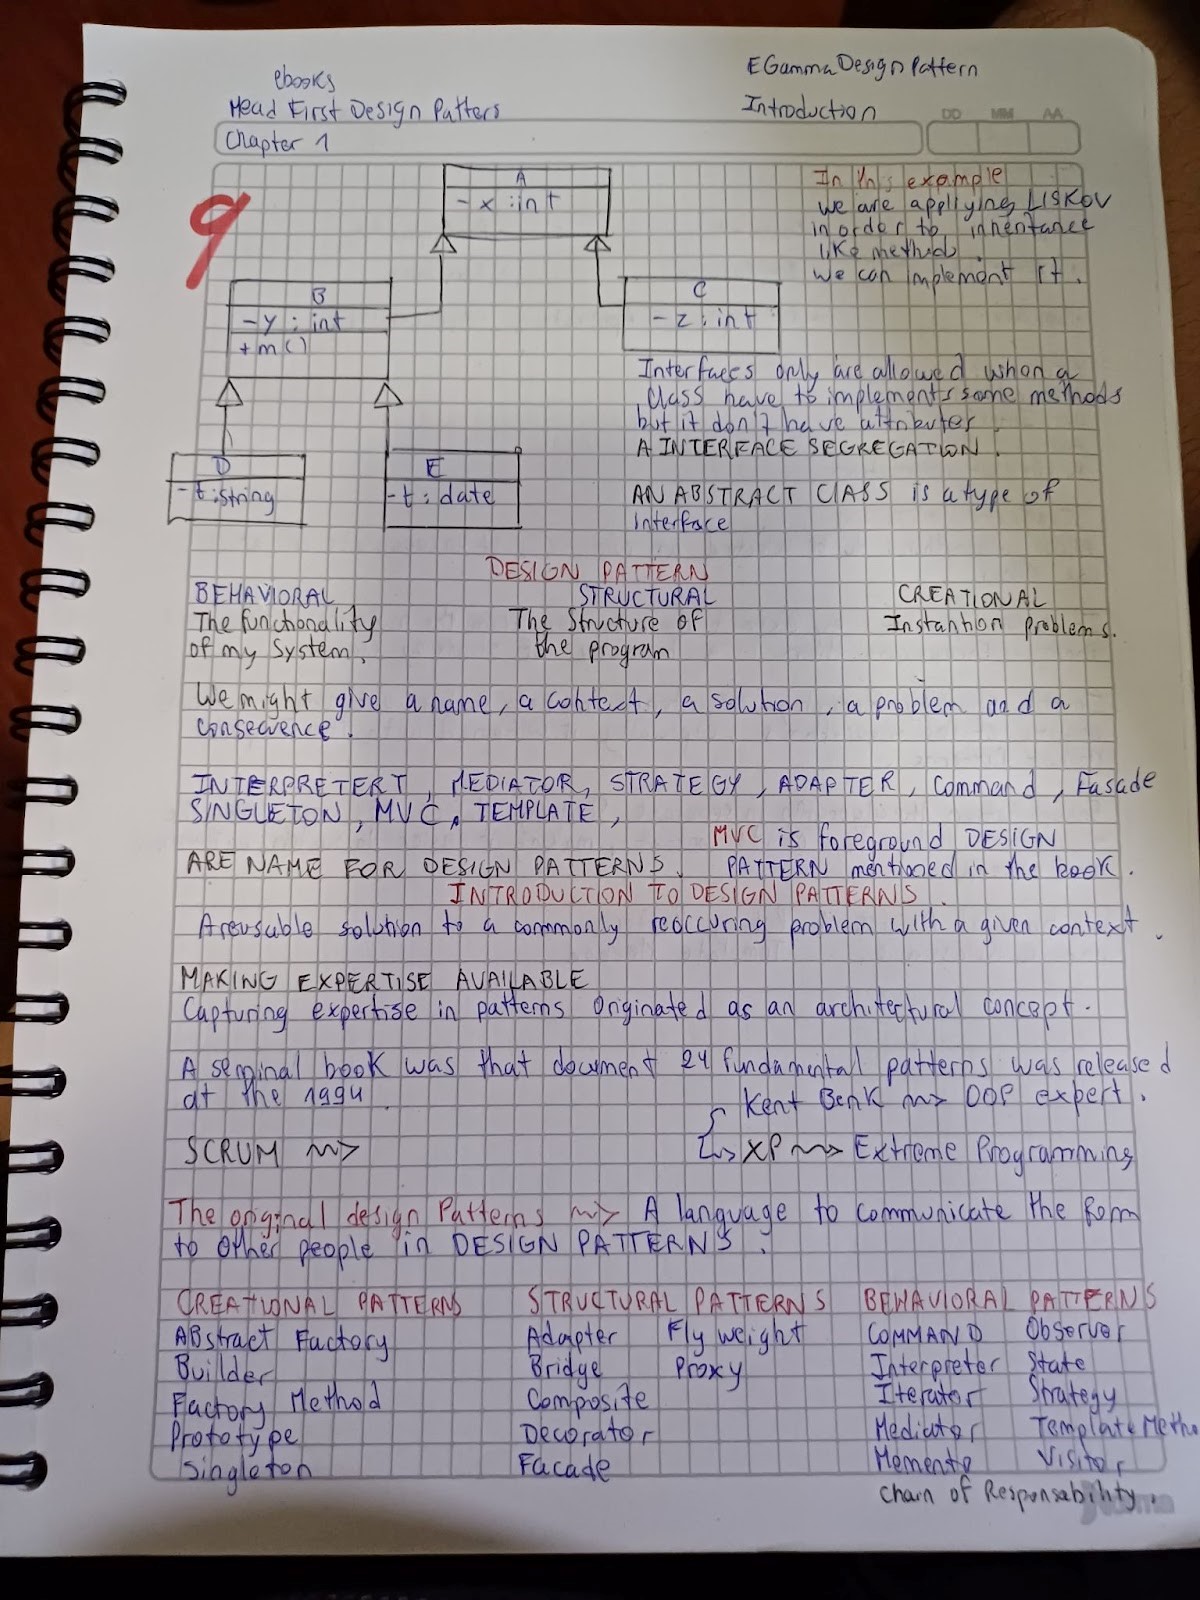 ebooks
Head First Design Patters
EGamma Design Pattern
Introduction
DD MM AA
Chapter 1
9
A
- x : int
In this example
we are applying LISKOV
in order to inheritance
like method.
we can implement it.
B
- y : int
+ m ()
C
- z : int
Interfaces only are allowed when a
class have to implements some methods
but it don't have attributes.
A INTERFACE SEGREGATION.
D
- t : string
E
- t : date
AN ABSTRACT CLASS is a type of
interface
DESIGN PATTERN
BEHAVIORAL
The functionality
of my system.
STRUCTURAL
The structure of
the program
CREATIONAL
Instantion problems.
We might give a name, a context, a solution, a problem and a
consecuence.
INTERPRETERT, MEDIATOR, STRATEGY, ADAPTER, Command, Fasade
SINGLETON, MVC, TEMPLATE,
MVC is foreground DESIGN
ARE NAME FOR DESIGN PATTERNS. PATTERN mentioned in the book.
INTRODUCTION TO DESIGN PATTERNS.
A reusable solution to a commonly reoccuring problem with a given context.
MAKING EXPERTISE AVAILABLE
Capturing expertise in patterns originated as an architectural concept.
A seminal book was that document 24 fundamental patterns was released
at the 1994
Kent Benk ~> OOP expert.
SCRUM ~>
↳ XP ~> Extreme Programming
The original design Patterns ~> A language to communicate the form
to other people in DESIGN PATTERNS.
CREATIONAL PATTERNS
Abstract Factory
Builder
Factory Method
Prototype
Singleton
STRUCTURAL PATTERNS
Adapter Fly weight
Bridge Proxy
Composite
Decorator
Facade
BEHAVIORAL PATTERNS
COMMAND Observer
Interpreter State
Iterator Strategy
Mediator Template Metho
Memento Visitor
Chain of Responsability.